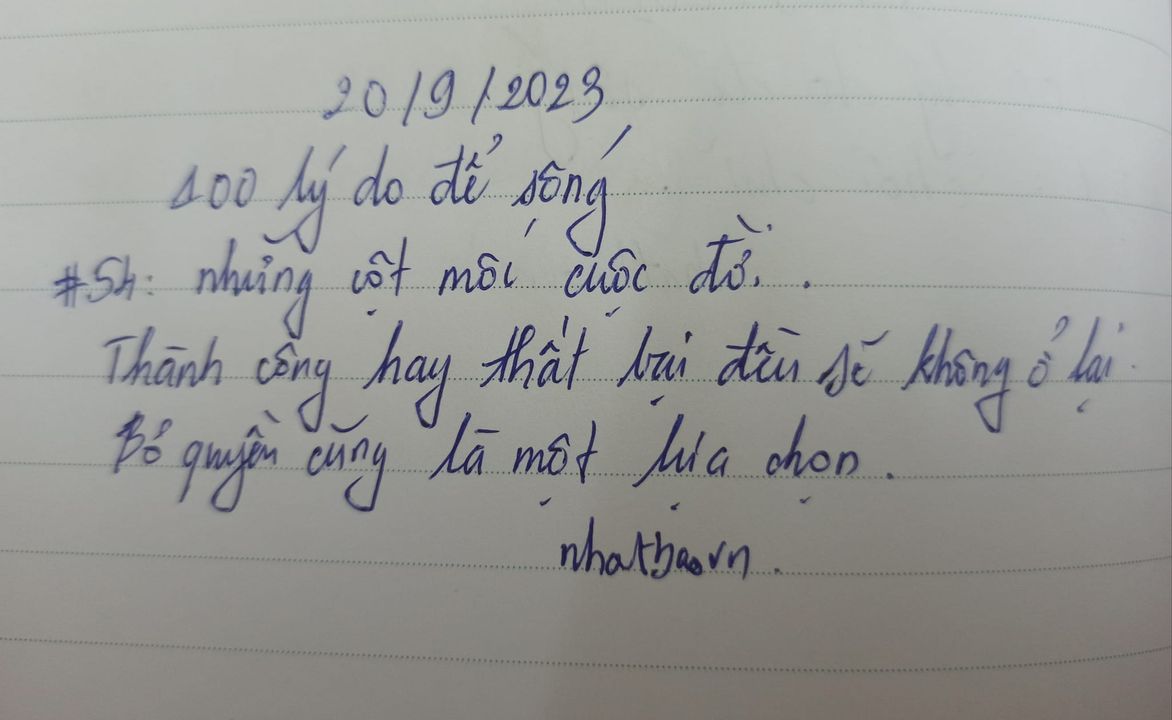 20/9/2023
100 lý do để sống
#54: những cột mốc cuộc đời.
Thành công hay thất bại đều sẽ không ở lại.
Bỏ quyền cũng là một lựa chọn.
nhatbaovn.